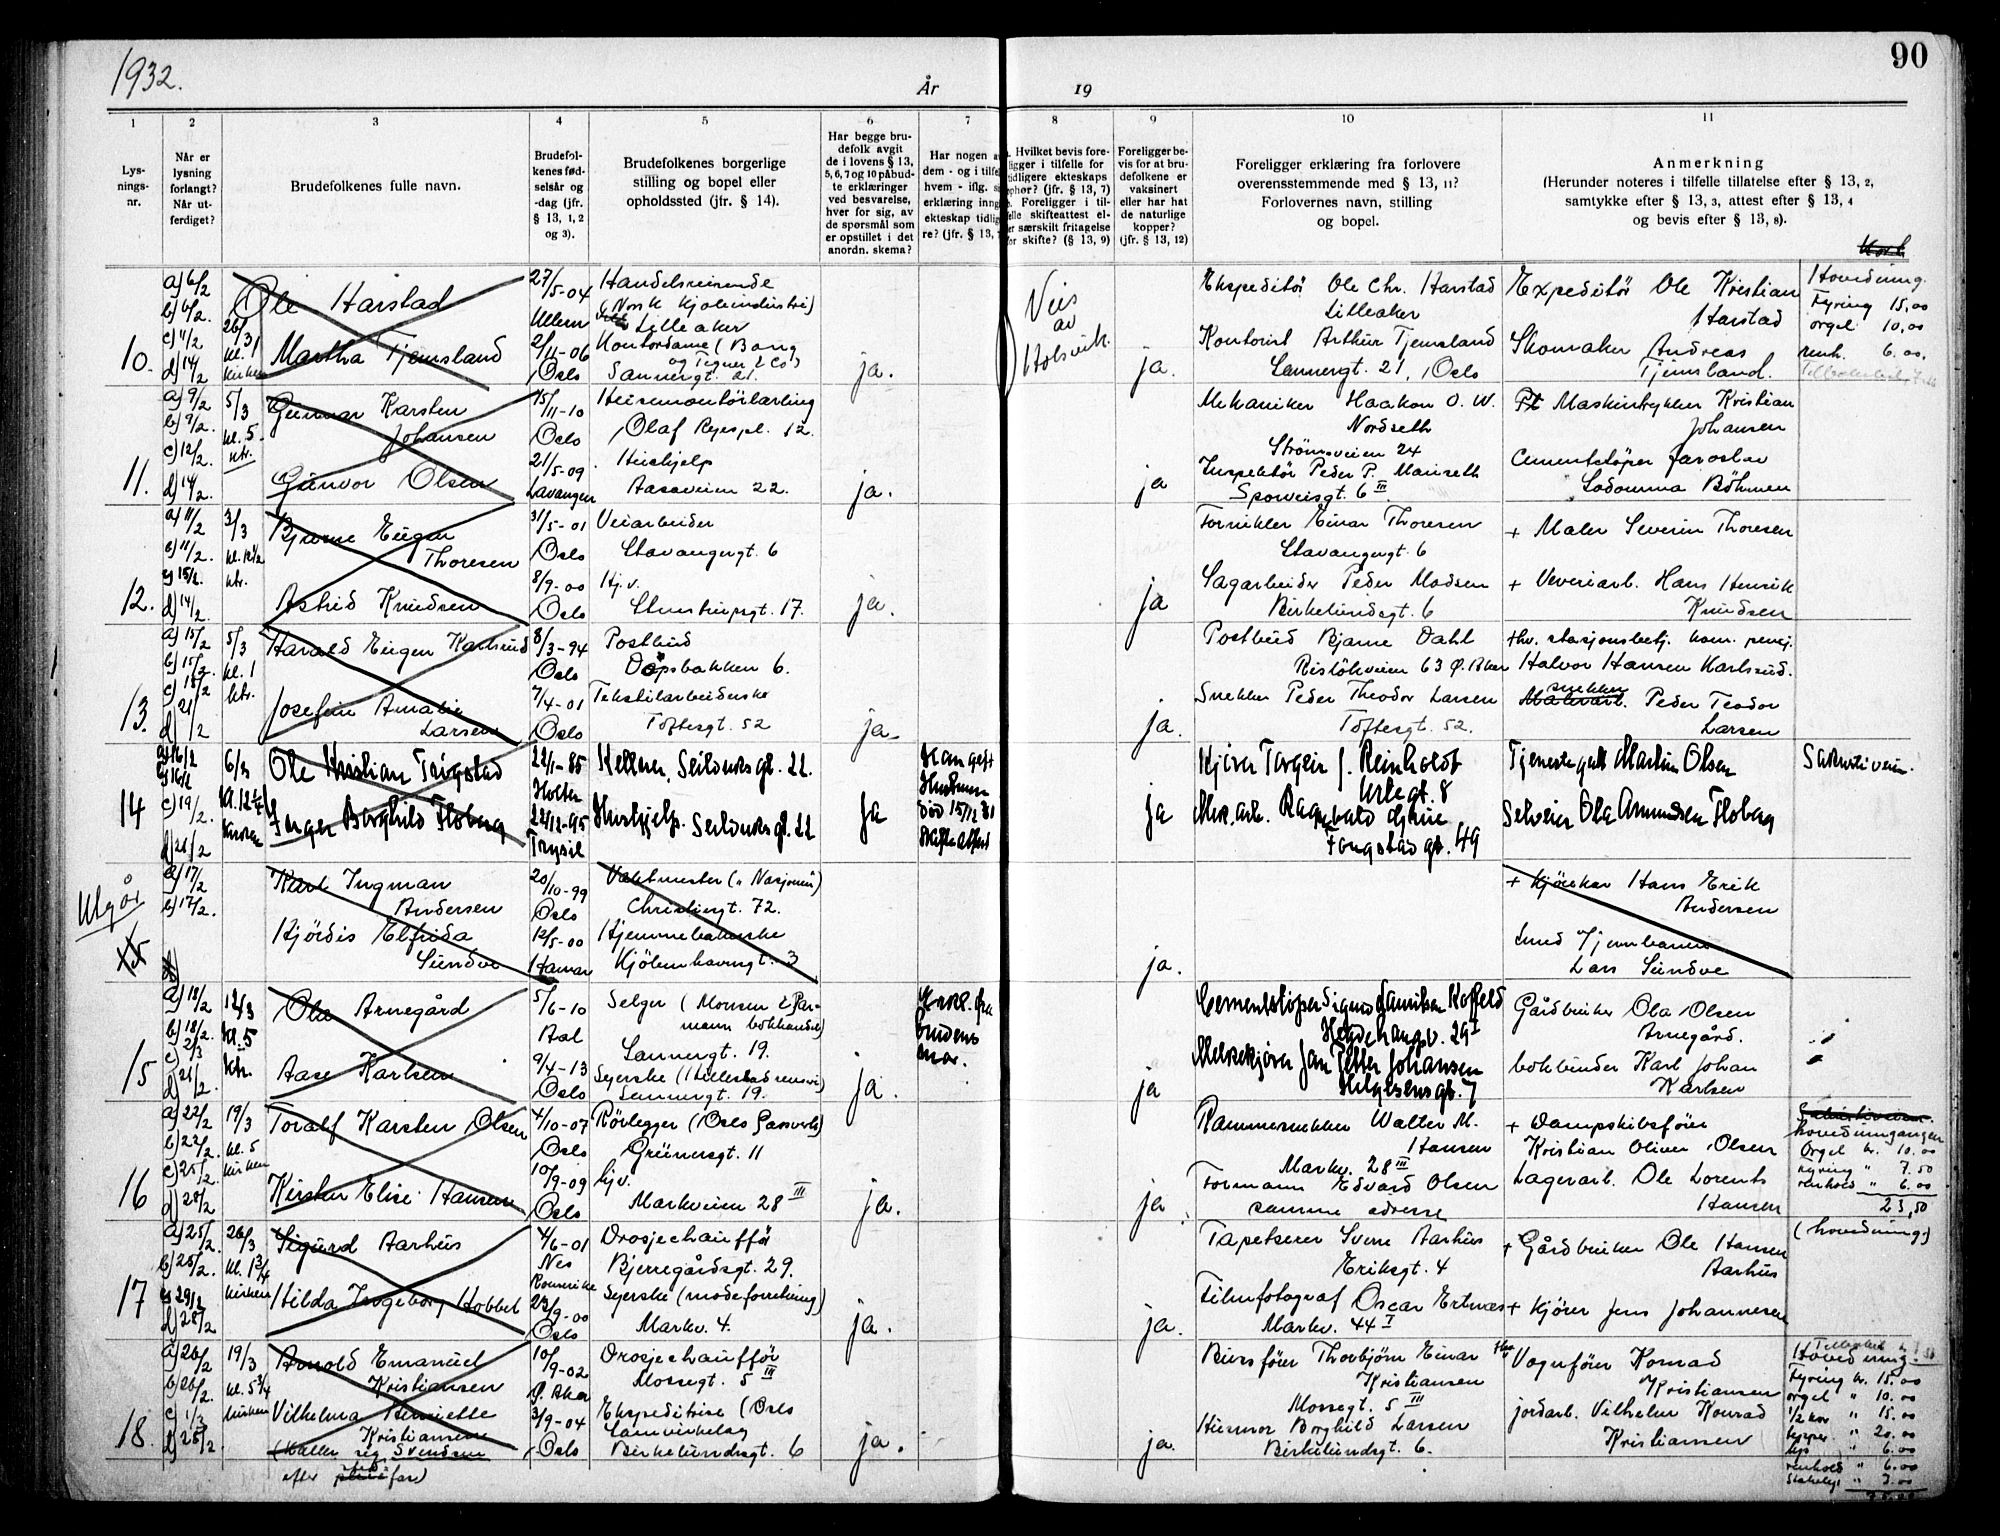 1932.
År
19
90
1
2
3
4
5
6
7
8
9
10
11
Lys-
nings-
nr.
Når er
lysning
forlangt?
Når ut-
ferdiget?
Brudefolkenes fulle navn.
Brudefol-
kenes fød-
selsår og
-dag (jfr.
§ 13, 1, 2
og 3).
Brudefolkenes borgerlige
stilling og bopel eller
opholdssted (jfr. § 14).
Har begge bru-
defolk avgit
de i lovens § 13,
5, 6, 7 og 10 påbud-
te erklæringer
ved besvarelse,
hver for sig, av
de spørsmål som
er opstillet i det
anordn. skema?
Har nogen a
dem - og i tilfe
hvem - iflg.
erklæring inng
ekteskap tidlig
re? (jfr. § 13,
Hvilket bevis fore-
ligger i tilfelle for
tidligere ekteskaps
ophør? (jfr. § 13, 7)
Foreligger i til-
felle skifteattest el-
er særskilt fritagelse
for skifte? (§ 13, 9)
Foreligger be-
vis for at bru-
defolkene er
vaksinert
eller har hat
de naturlige
kopper?
(jfr. § 13, 12)
Foreligger erklæring fra forlovere
overensstemmende med § 13, 11?
Forlovernes navn, stilling
og bopel.
Anmerkning
(Herunder noteres i tilfelle tillatelse efter § 13, 2,
samtykke efter § 13, 3, attest efter § 13, 4
og bevis efter § 13, 8).
10.
a) 6/2
b) 6/2.
c) 11/2
d) 14/2
26/3
kl. 1
kirken
Ole Harstad
Martha Tjemsland
27/5-04
Ullern
2/11-06
Oslo
Handelsreisende
(Norsk Kjoleindustri)
Lilleaker
Kontordame (Bang
og Tegner & Co)
Sannergt. 21.
ja.
Vies
av
Holsvik.
ja.
Ekspeditør Ole Chr. Harstad
Lilleaker
Kontorist Arthur Tjemsland
Sannergt. 21, Oslo
Expeditør Ole Kristian
Harstad
Skomaker Andreas
Tjemsland.
Hovedinng.
Fyring 15,00
orgel 10,00
renh. 6.00.
11.
a) 9/2
b) 9/2.
c) 12/2.
d) 14/2.
5/3
kl. 5
ktr.
Gunnar Karsten
Johansen
Gunvor Olsen
15/11-10
Oslo
21/5-09
Lavangen
Heismontørlærling
Olaf Ryespl. 12.
Hushjelp
Aasaveien 22.
ja.
ja
Mekaniker Haakon O. W.
Nordseth
Strømsveien 24
Inspektør Peder P. Maurseth
Sporveisgt. 6 III
Maskintrykker Kristian
Johansen
Cementstøper Jaroslav
Sodomma Böhmen
12.
a) 11/2
b) 11/2.
c) 15/2.
d) 14/2.
3/3
kl. 12 1/2
ktr.
Bjarne Eugen
Thoresen
Astrid Knudsen
31/5-01
Oslo
8/9-00
Oslo
Veiarbeider
Stavangergt. 6
Hj.v.
Steenstrupsgt. 17.
ja.
ja
Fornikler Einar Thoresen
Stavangergt. 6
Sagarbeider Peder Madsen
Birkelundsgt. 6
+ Maler Severin Thoresen
+ Veveriarb. Hans Henrik
Knudsen
13.
a) 15/2
b) 15/2.
c) 18/2
d) 21/2
5/3
kl. 1
ktr.
Harald Eugen Karlsrud
Josefine Amalie
Larsen
8/3-94
Oslo
7/4-01
Oslo
Postbud
Dopsbakken 6.
Tekstilarbeiderske
Toftesgt. 52
ja.
ja.
Postbud Bjarne Dahl
Risløkveien 63 Ø. Aker
Snekker Peder Theodor Larsen
Toftesgt. 52.
fhv. stasjonsbetj. kom. pensj.
Halvor Hansen Karlsrud.
snekker
Peder Teodor
Larsen
14
a) 16/2
b) 16/2
c) 19/2.
d) 21/2
6/3
kl. 12 1/4
Kirken
Ole Kristian Trøgstad
Inger Borghild Floberg
22/1-85
Holter
22/12-95
Trysil
Kellner, Seilduksgt. 22.
Hushjelp. Seilduksgt. 22
ja
Han gift
Hustruen
død 15/12 31
Skifteattest
ja
Kjører Torgeir J. Reinholdt
Urtegt. 8
Mek. arb. Ragnvald Gjerue
Fougstadsgt. 49
Tjenestegutt Martin Olsen
Selveier Ola Amundsen Floberg
Sakristiveien.
Utgår
15
a) 17/2
b) 17/2.
Karl Ingman
Andersen
Hjørdis Elfrida
Sundve
20/10-99
Oslo
12/5-00
Hamar
Vaktmester (" Nasjonen")
Christiesgt. 72.
Hjemmebakerske
Kjøbenhavngt. 3
ja.
+ Kjøreker Hans Erik
Andersen
Smed Jernbanen
Lars Sundve
15
a) 18/2
b) 18/2.
c) 2/3
d) 21/2.
12/3
kl. 5
ktr.
Ola Arnegård
Aase Karlsen
5/6-10
Aal
9/4-13
Oslo
Selger (Monsen & Par-
mann bokhandel)
Sannergt. 19.
Syerske (Hillestad rensvi)
Sannergt. 19.
ja.
Erkl. fra
brudens
mor.
ja
Cementstøper Sigurd Lauritsen Koffeld
Hegdehaugsv. 29 I
Melkekjører Jan Petter Johansen
Helgesensgt. 7
Gårdbruker Ola Olsen
Arnegård.
bokbinder Karl Johan
Karlsen
16
a) 22/2
b) 22/2.
c) 25/2
d) 28/2
19/3
kl. 5
kirken
Toralf Karsten Olsen
Kirsten Elise Hansen
4/10-07
Oslo
10/9-09
Oslo
Rørlegger (Oslo Gassverk)
Grünersgt. 11
hjv.
Markveien 28 III
ja.
ja.
Rammesnekker Walter M.
Hansen
Markv. 28 III
Formann Edvard Olsen
samme adresse
+ Dampskibsfører
Kristian Oliver Olsen
Lagerarb. Ole Lorents
Hansen
hovedinngangen
Orgel kr. 10.00
fyring " 7.50
renhold " 6.00
23,50
17
a) 25/2.
b) 25/2.
c) 29/2
d) 28/2
26/3
kl. 1 3/4
kirken
Sigurd Aarhus
Hilda Ingeborg Hobbel
4/6-01
Nes
Romerike
23/9-00
Oslo
Drosjechauffør
Bjerregårdsgt. 29.
Syerske (modeforretning)
Markv. 4.
ja.
ja.
Tapetserer Sverre Aarhus
Eriksgt. 4
Filmfotograf Oscar Ertnæs
Markv. 44 I
+ Gårdbruker Ole Hansen
Aarhus
+ Kjører Jens Johannesen
(hovedinng)
18.
a) 26/2
b) 26/2.
c) 1/3
d) 28/2.
19/3
kl. 5 3/4
kirken
Arnold Emanuel
Kristiansen
Vilhelma Henriette
Kristiansen
(Kaller sig Svendsen
efter stedfar)
10/9-02
Ø. Aker
3/9-04
Oslo
Drosjechauffør
Mossegt. 5 III
Ekspeditrise (Oslo
Samvirkelag
Birkelundsgt. 6
ja.
ja.
Bussfører Thorbjørn Einar
Kristiansen
Mossegt. 5 III
Husmor Borghild Larsen
Birkelundsgt. 6.
Vognfører Konrad
Kristiansen
jordarb. Vilhelm Konrad
Kristiansen
Hovedinng.
Fyring kr. 15.00
orgel " 10.00
1/2 kor " 15.00
tepper " 20.00
lys " 6.00
renhold " 6.00
" 3.00